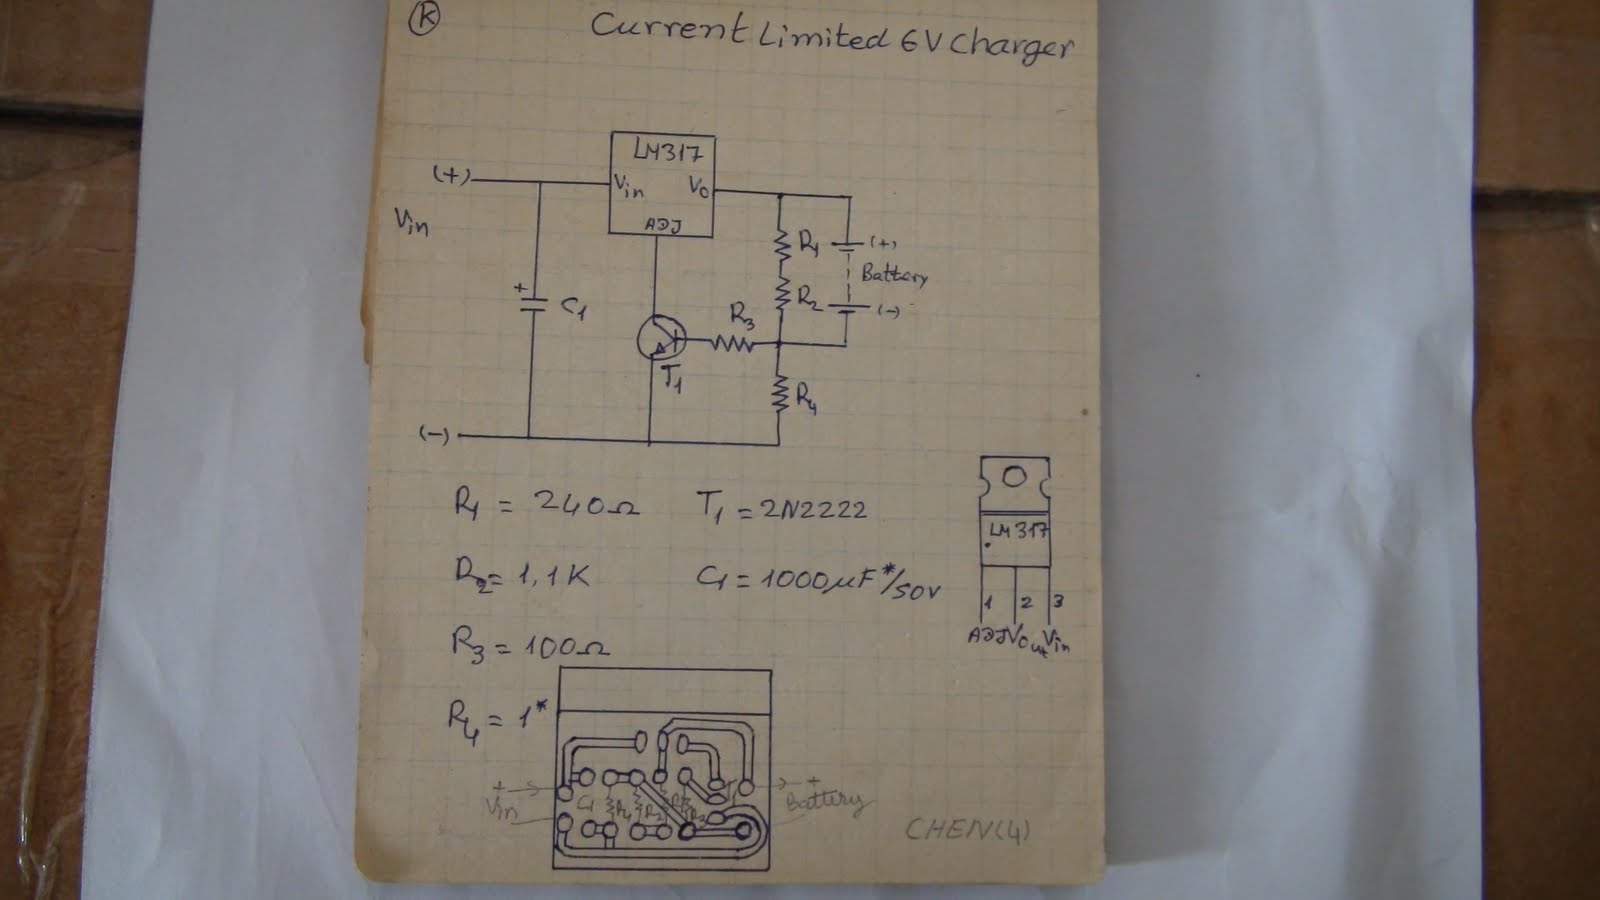 K
Current Limited 6V Charger
LM317
Vin Vo
ADJ
(+)
Vin
+
C1
R1
(+)
Battery
R2
(-)
R3
T1
R4
(-)
R1 = 240Ω
T1 = 2N2222
R2 = 1,1K
C1 = 1000μF*/50V
R3 = 100Ω
R4 = 1*
LM317
1 2 3
ADJ Vout Vin
+
Vin
C1 R4 R2 R1 R3
+
Battery
CHEN(4)